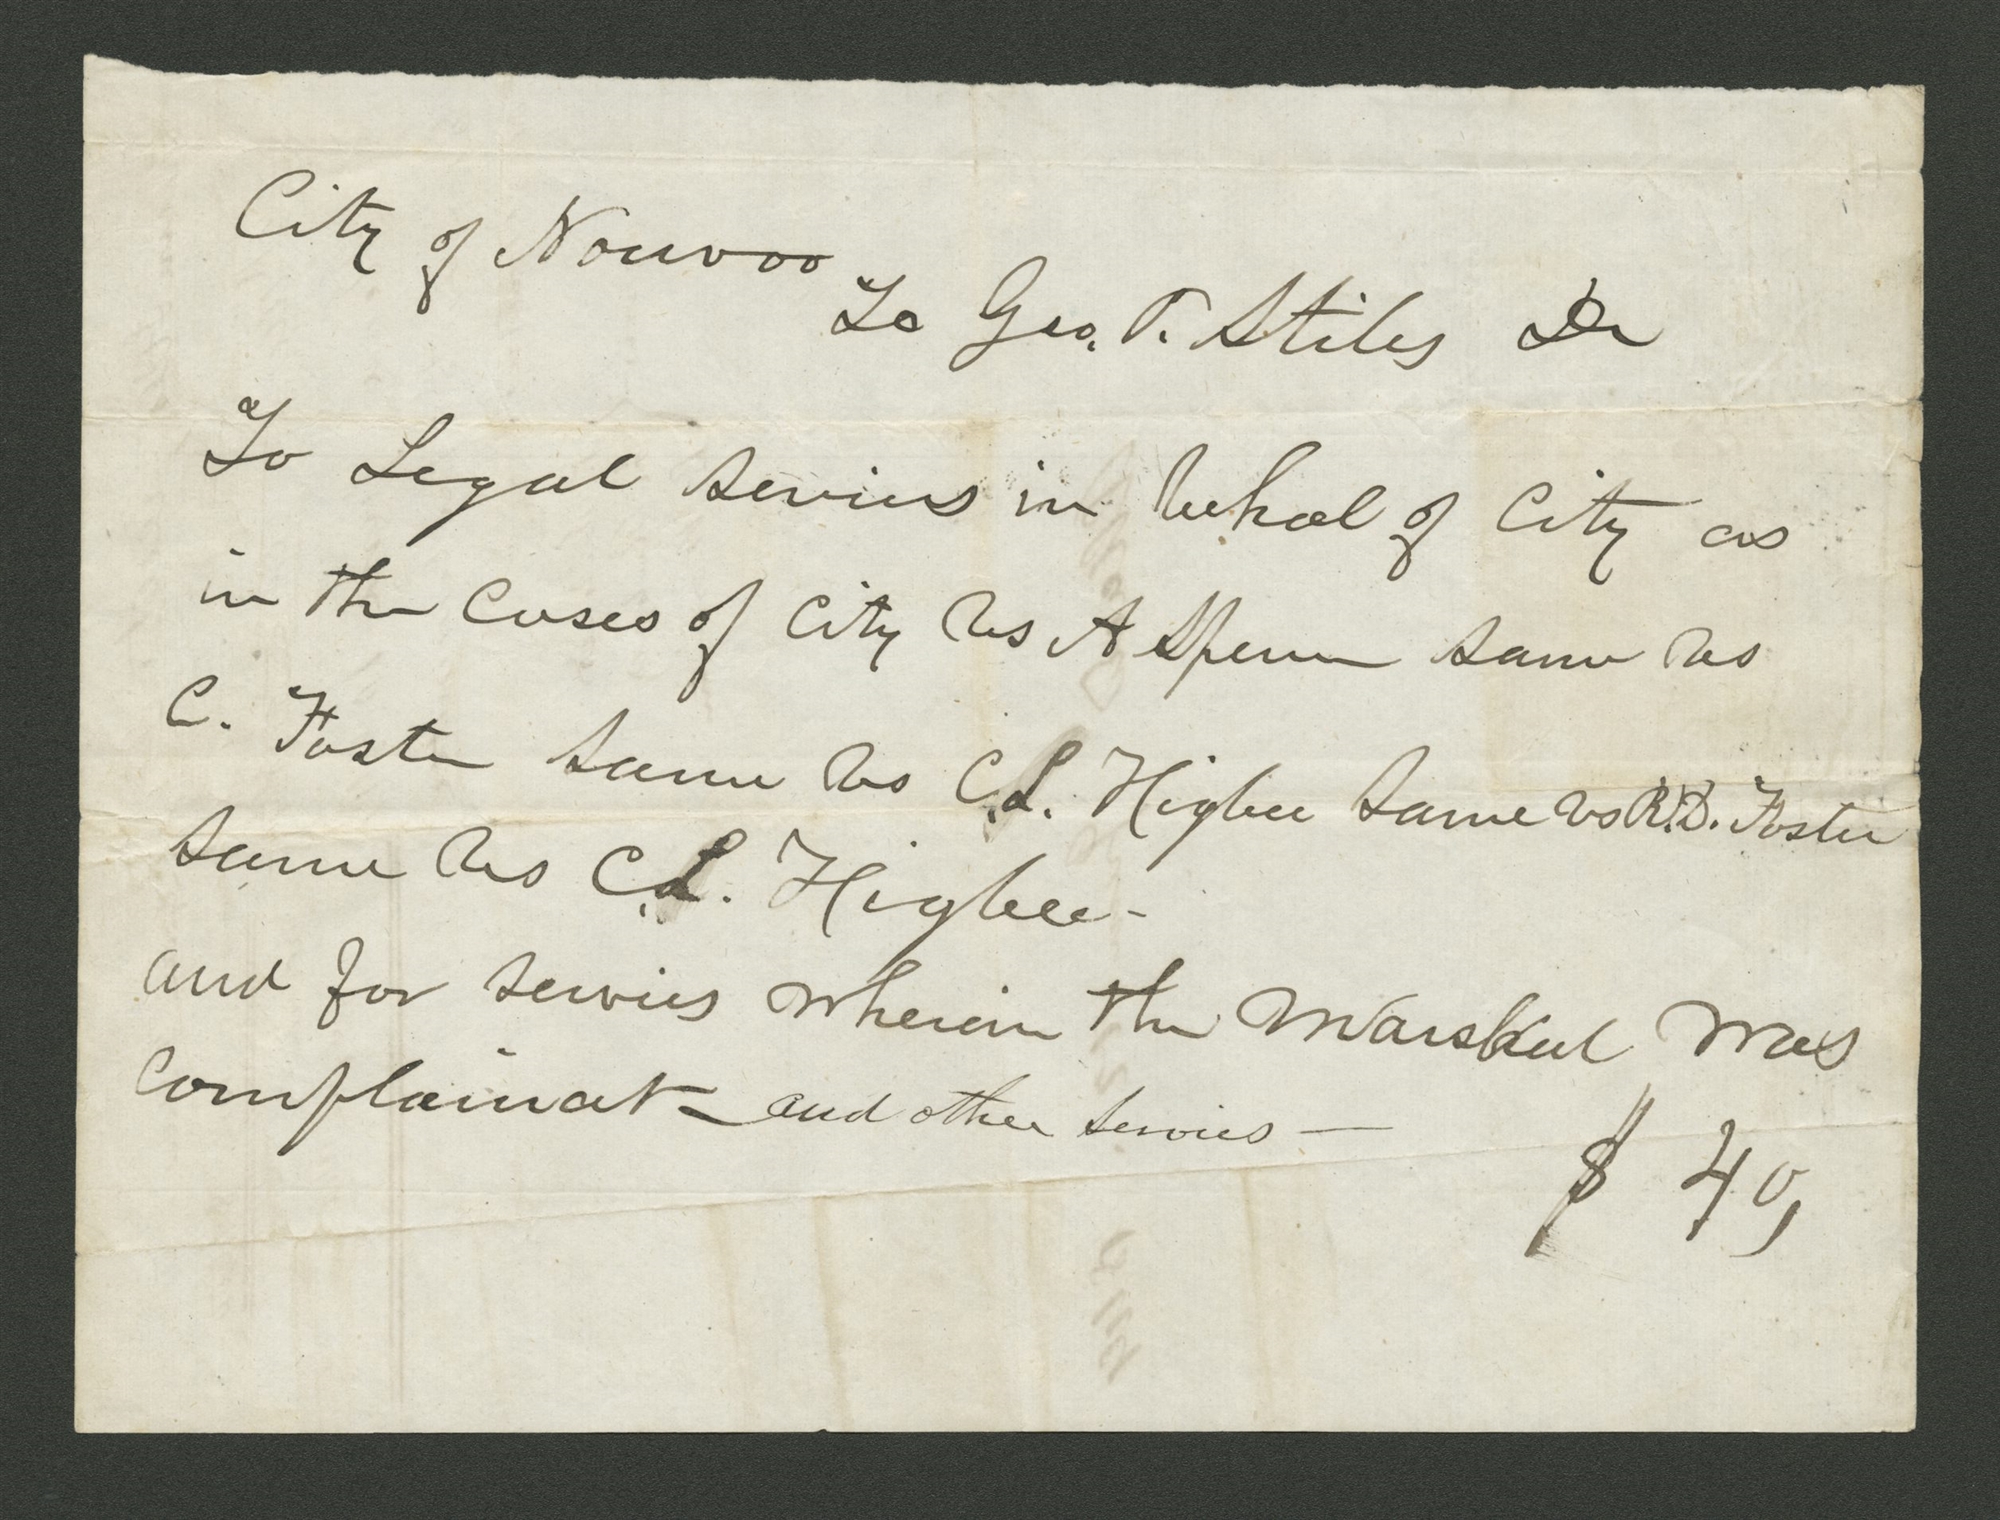 City of Nouvoo
To Geo. P. Stiles Dr
To Legal Servics in behal of City as
in the Cases of City vs A Spencer Same vs
C. Foster Same vs C. L. Higbee Same vs R. D. Foster
Same vs C. L. Higbee -
and for servics wherein the Marshal was
complainat and other servics —
$ 40,